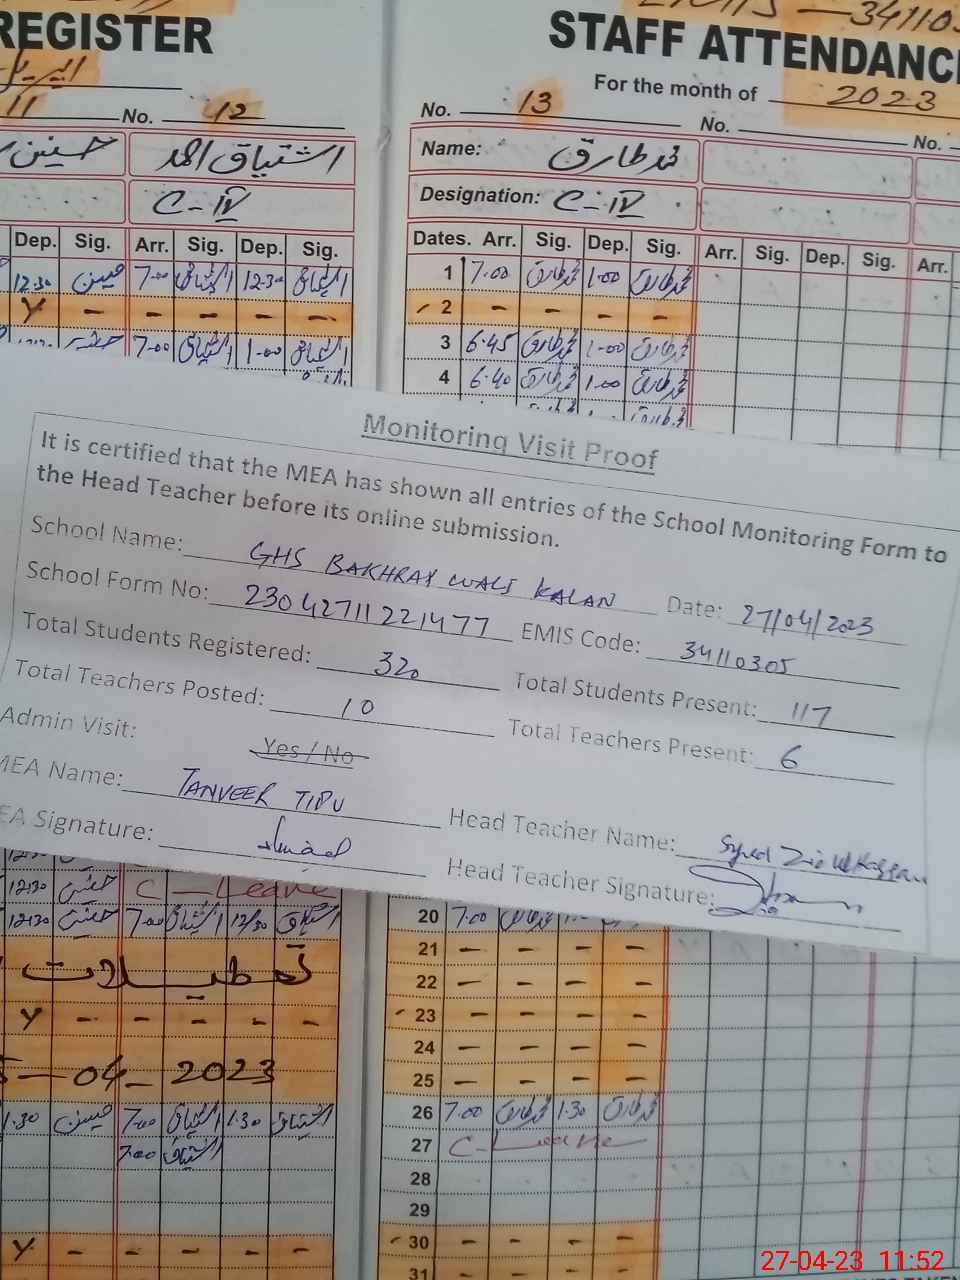 REGISTER
اپریل
11 No. 12
حسین اشتیاق احمد
C-IV
Dep. Sig. Arr. Sig. Dep. Sig.
12.30 حسین 7-00 اشتیاق 12-30 اشتیاق
Y - - - - -
7-00 اشتیاق 1-00 اشتیاق
STAFF ATTENDANC
For the month of 2023
No. 13 No. No.
Name: محمد طارق
Designation: C-IV
Dates. Arr. Sig. Dep. Sig. Arr. Sig. Dep. Sig. Arr.
1 7.00 محمد طارق 1-00 محمد طارق
2 - - - -
3 6.45 محمد طارق 1-00 محمد طارق
4 6.40 محمد طارق 1-00 محمد طارق
Monitoring Visit Proof
It is certified that the MEA has shown all entries of the School Monitoring Form to
the Head Teacher before its online submission.
School Name: GHS BAKHRAY WALI KALAN Date: 27/04/2023
School Form No: 23042711221477 EMIS Code: 34110305
Total Students Registered: 320 Total Students Present: 117
Total Teachers Posted: 10 Total Teachers Present: 6
Admin Visit: Yes / No
MEA Name: TANVEER TIPU Head Teacher Name: Syed Zia Ul Hassan
EA Signature: Head Teacher Signature:
12.30 حسین C-Leave
12.30 حسین 7-00 اشتیاق 12/30 اشتیاق
تعطیلات
Y - - - - -
-04-2023
1.30 حسین 7-00 اشتیاق 1.30 اشتیاق
7-00 اشتیاق
Y - - - - -
20 7.00 محمد طارق
21 - - - -
22 - - - -
23 - - - -
24 - - - -
25 - - - -
26 7.00 محمد طارق 1.30 محمد طارق
27 C-Leave
28
29
30 - - - -
31
27-04-23 11:52